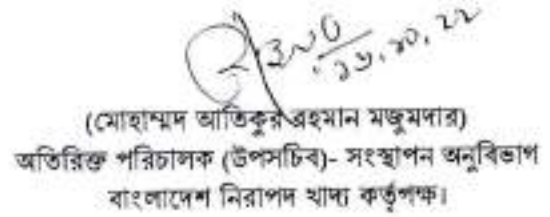 (মোহাম্মদ আতিকুর রহমান মজুমদার)
অতিরিক্ত পরিচালক (উপসচিব)- সংস্থাপন অনুবিভাগ
বাংলাদেশ নিরাপদ খাদ্য কর্তৃপক্ষ।